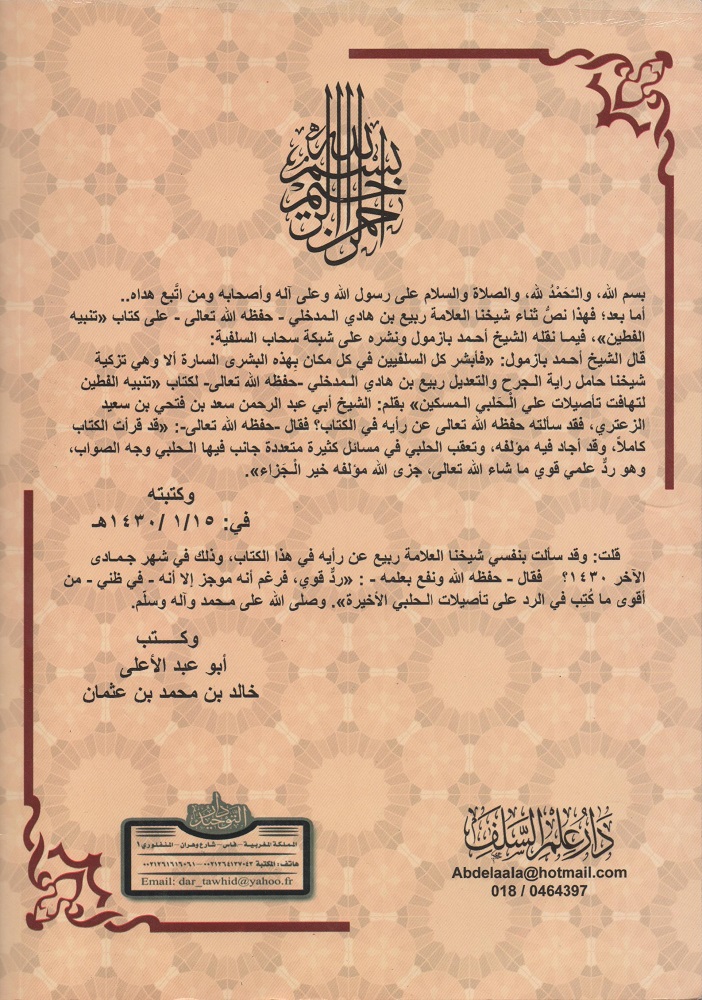 بسم الله الرحمن الرحيم
بسم الله، والـحَمْدُ لله، والصلاة والسلام على رسول الله وعلى آله وأصحابه ومن اتَّبع هداه..
أما بعد؛ فهذا نصُّ ثناء شيخنا العلامة ربيع بن هادي الـمدخلي - حفظه الله تعالى - على كتاب «تنبيه
الفطين»، فيمـا نقله الشيخ أحـمد بازمول ونشره على شبكة سحاب السلفية:
قال الشيخ أحـمد بازمول: «فأبشر كل السلفيين في كل مكان بهذه البشرى السارة ألا وهي تزكية
شيخنا حامل راية الـجرح والتعديل ربيع بن هادي الـمدخلي -حفظه الله تعالى- لكتاب «تنبيه الفطين
لتهافت تأصيلات علي الْحَلبي الـمسكين» بقلم: الشيخ أبي عبد الرحمن سعد بن فتحي بن سعيد
الزعتري، فقد سألته حفظه الله تعالى عن رأيه في الكتاب؟ فقال -حفظه الله تعالى-: «قد قرأت الكتاب
كاملاً، وقد أجاد فيه مؤلفه، وتعقب الحلبي في مسائل كثيرة متعددة جانب فيها الـحلبي وجه الصواب،
وهو ردٌّ علمي قوي ما شاء الله تعالى، جزى الله مؤلفه خير الْجَزاء».
وكتبته
في: ١/١٥/ ١٤٣٠هـ
قلت: وقد سألت بنفسي شيخنا العلامة ربيع عن رأيه في هذا الكتاب، وذلك في شهر جمـادى
الآخر ١٤٣٠؟ فقال - حفظه الله ونفع بعلمه - : «ردٌّ قوي، فرغم أنه موجز إلا أنه - في ظني - من
أقوى ما كُتِب في الرد على تأصيلات الـحلبي الأخيرة». وصلى الله على محمد وآله وسلّم.
وكـــتب
أبو عبد الأعلى
خالد بن محمد بن عثمان
دار التوحيد
المملكة المغربية - فاس - شارع وهران - المنفلوري ١
هاتف: المكتبة ٠٠٢١٢٦٤١٣٧٠٤٢ - ٠٠٢١٢٦١٦١٦٠٦١
Email: dar_tawhid@yahoo.fr
دار علم السلف
Abdelaala@hotmail.com
018 / 0464397